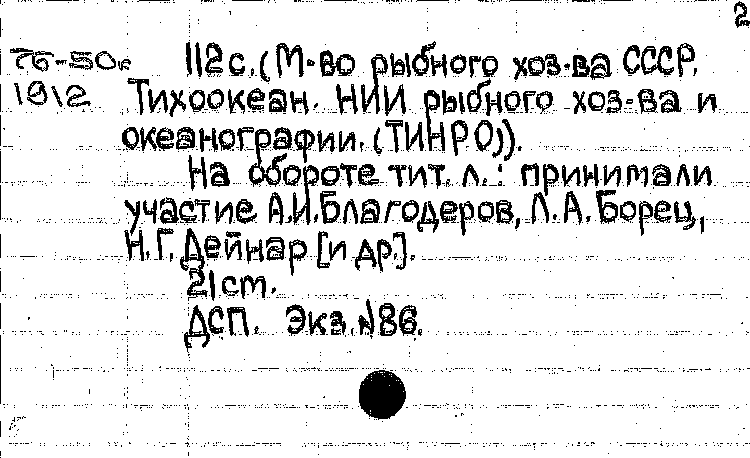 2
76-50с 112 с. (М-во рыбного хоз-ва СССР.
1912 Тихоокеан. НИИ рыбного хоз-ва и
океанографии. (ТИНРО)).
На обороте тит. л.: принимали
участие А.И.Благодеров, Л.А.Борец,
Н.Г.Дейнар [и др.].
21 см.
ДСП. Экз.№86.